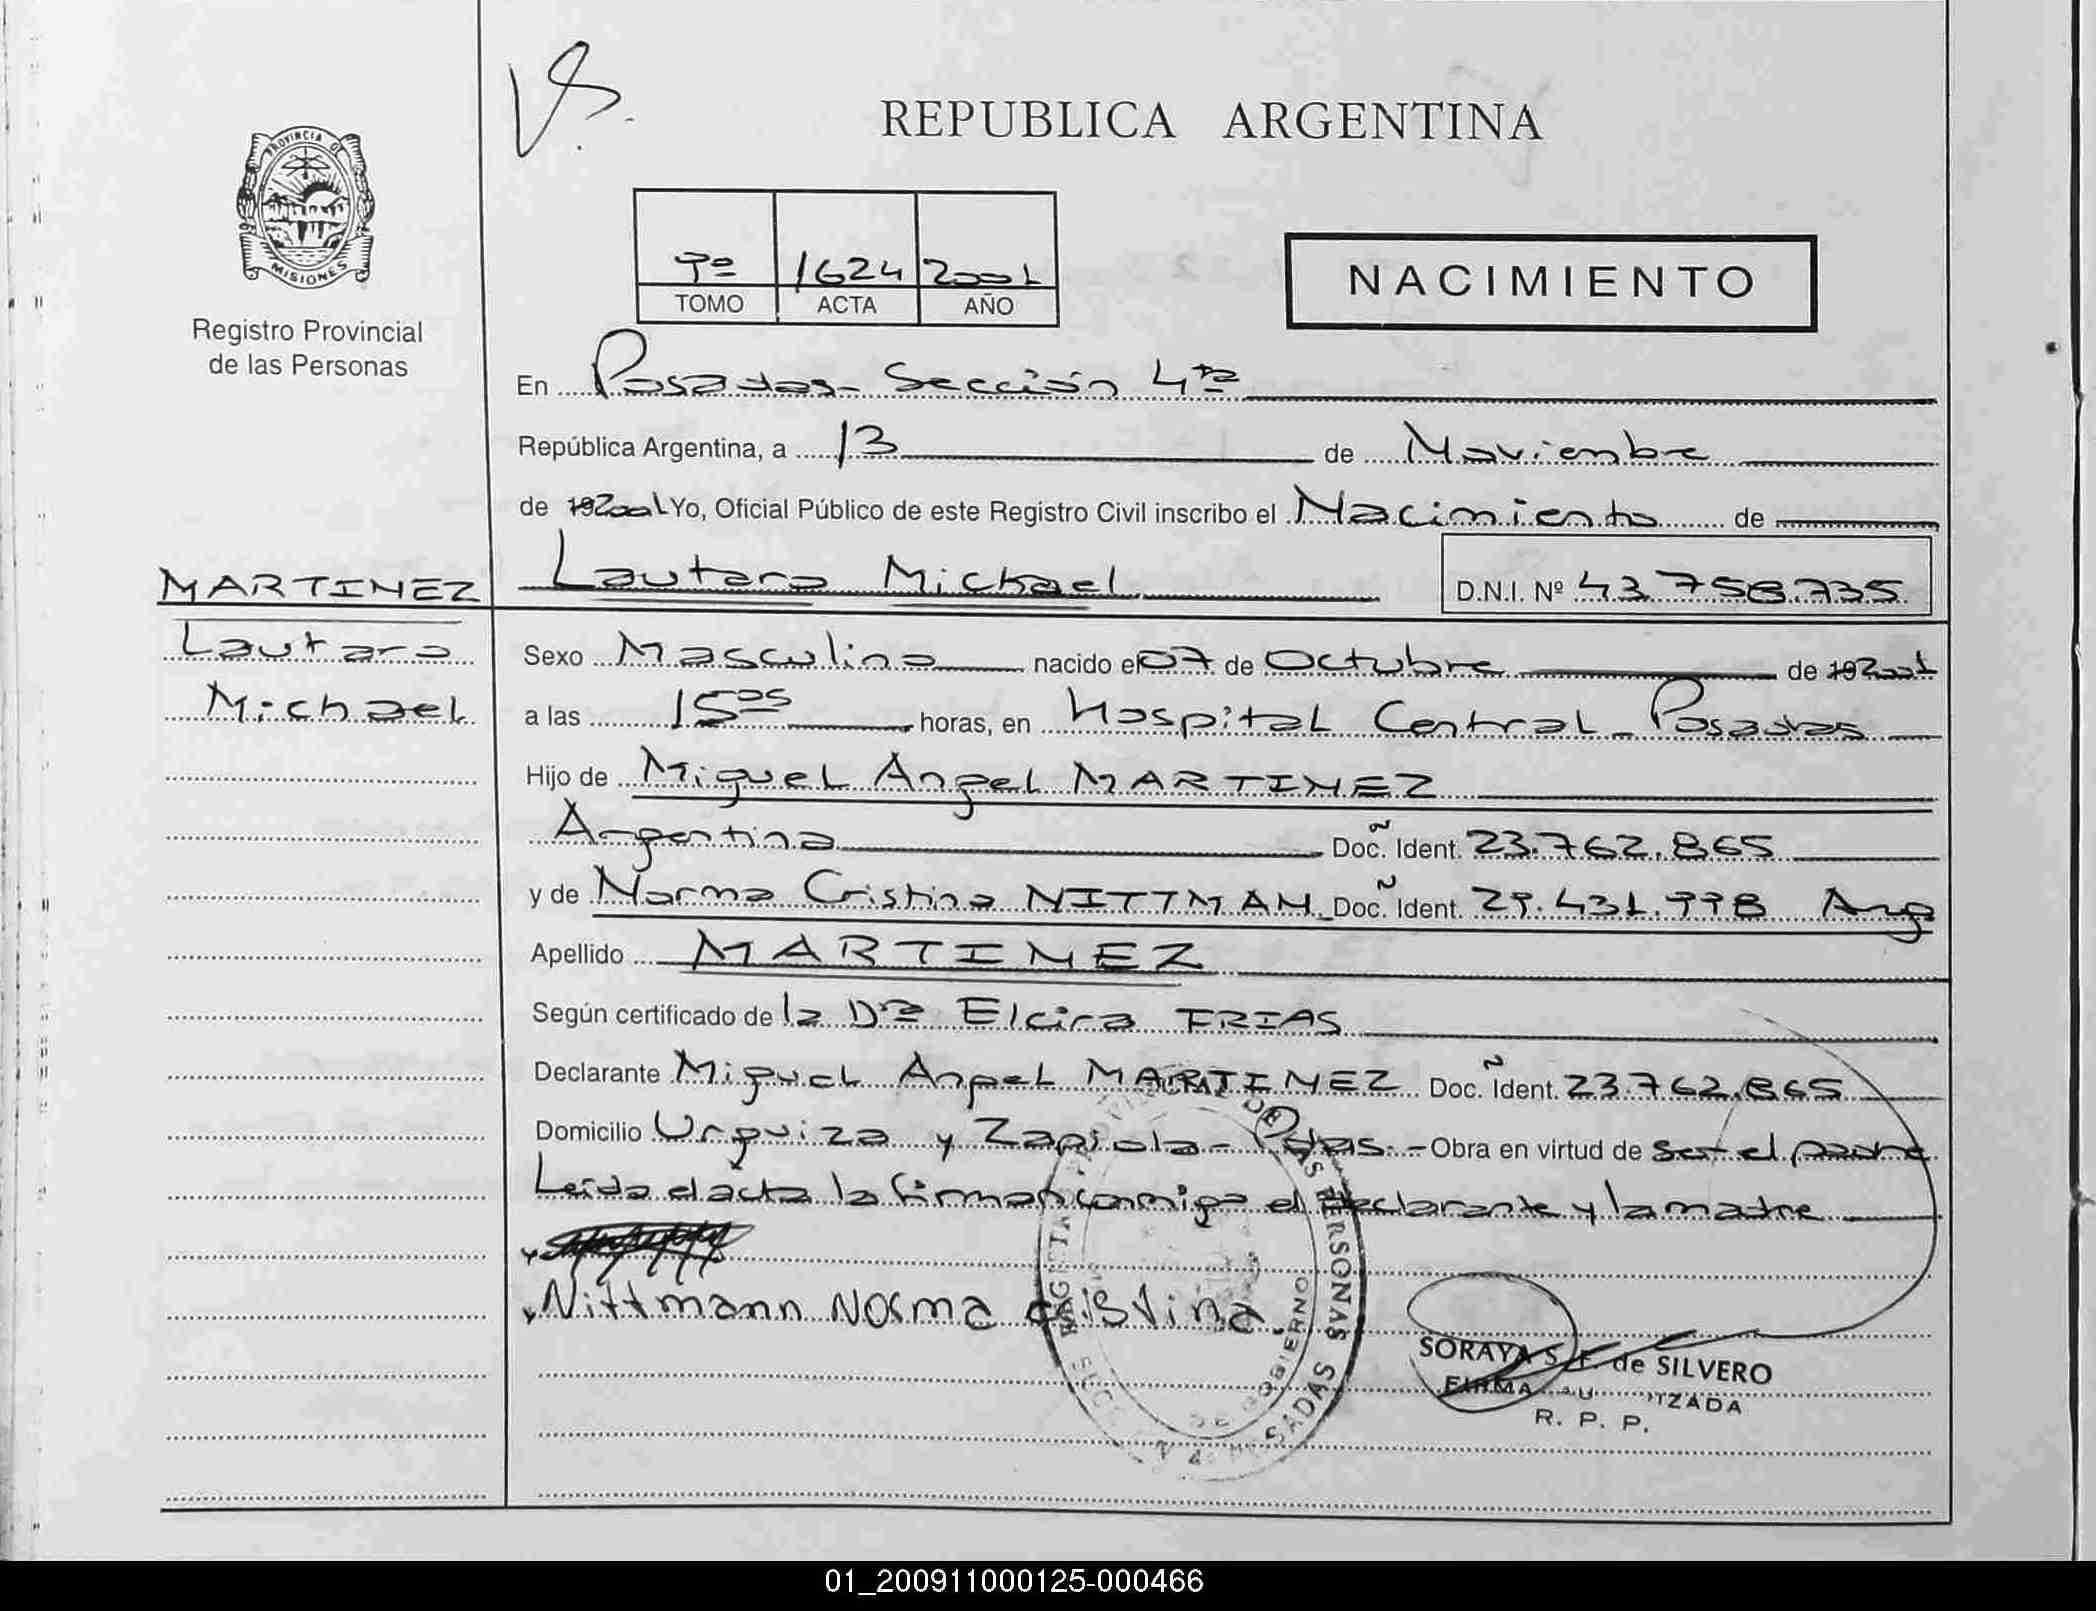 REPUBLICA ARGENTINA
PROVINCIA DE
MISIONES
Registro Provincial
de las Personas
1624 2001
TOMO ACTA AÑO
NACIMIENTO
En Posadas- Sección 4ta
República Argentina, a 13 de Noviembre
de 192001 Yo, Oficial Público de este Registro Civil inscribo el Nacimiento de
MARTINEZ
Lautaro
Michael
Lautaro Mickael
D.N.I. Nº 43 758.735
Sexo Masculino nacido el 07 de Octubre de 192001
a las 15 05 horas, en Hospital Central - Posadas
Hijo de Miguel Angel MARTINEZ
Argentina Doc. Ident. 23.762.865
y de Norma Cristina NITTMAN Doc. Ident. Arg
Apellido MARTINEZ
Según certificado de la Dra Elcira FRIAS
Declarante Miguel Angel MARTINEZ Doc. Ident. 23.762.865
Domicilio Urquiza y Zapiola - Pdas. - Obra en virtud de ser el padre
Leida el acta la firman conmigo el declarante y la madre
Nittmann Norma cristina
SORAYA S. F. de SILVERO
FIRMA AUTORIZADA
R. P. P.
01_200911000125-000466